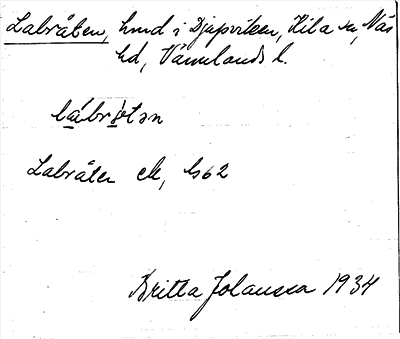 Labråten, hmd i Djupviken, Kila sn, Näs
hd, Värmlands l.
lábrǻtən
Labråten ek, bs62
Britta Johansson 1934